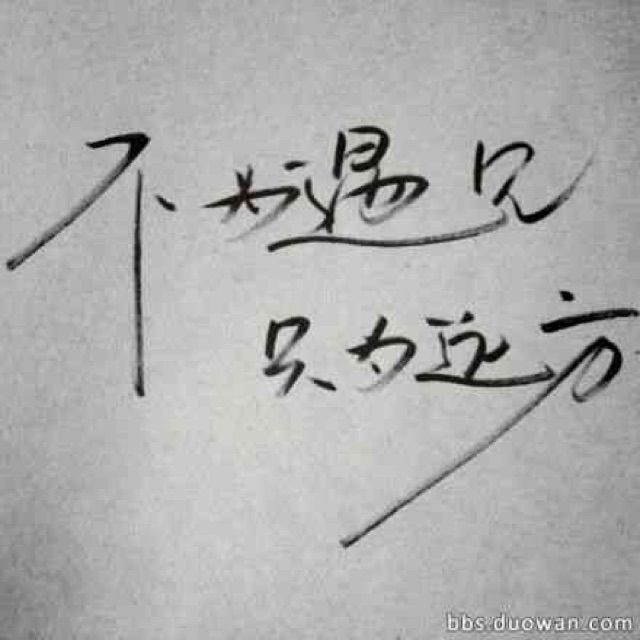 不为遇见
只为远方
bbs.duowan.com